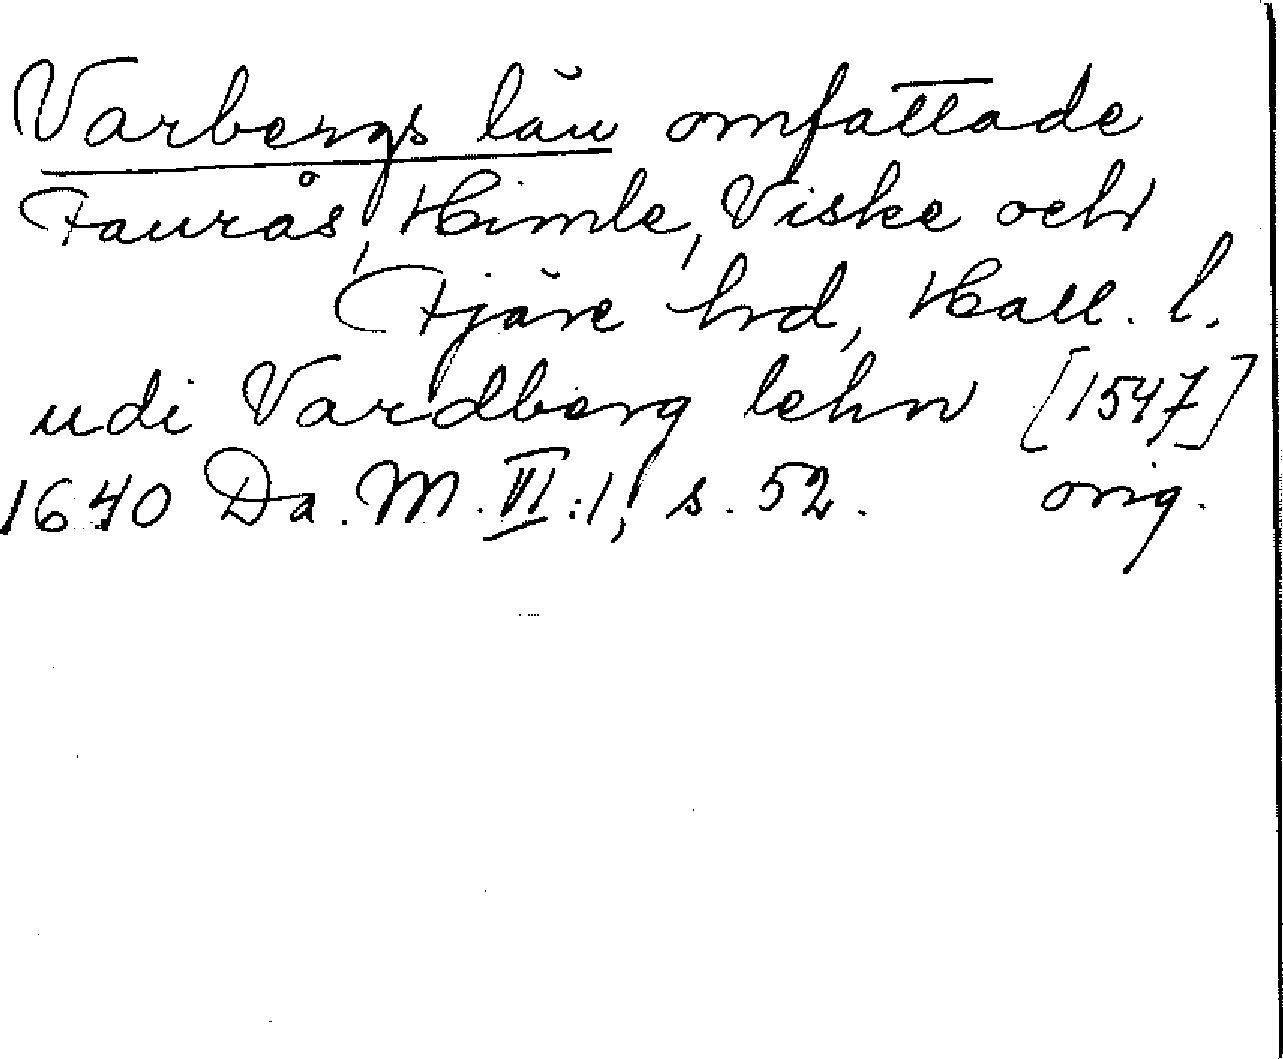 Varbergs län omfattade
Faurås, Himle, Viske och
Fjäre hrd, Hall. l.
udi Vardberg lehn [1547]
1640 Da. M. VI:1, s. 52. orig.